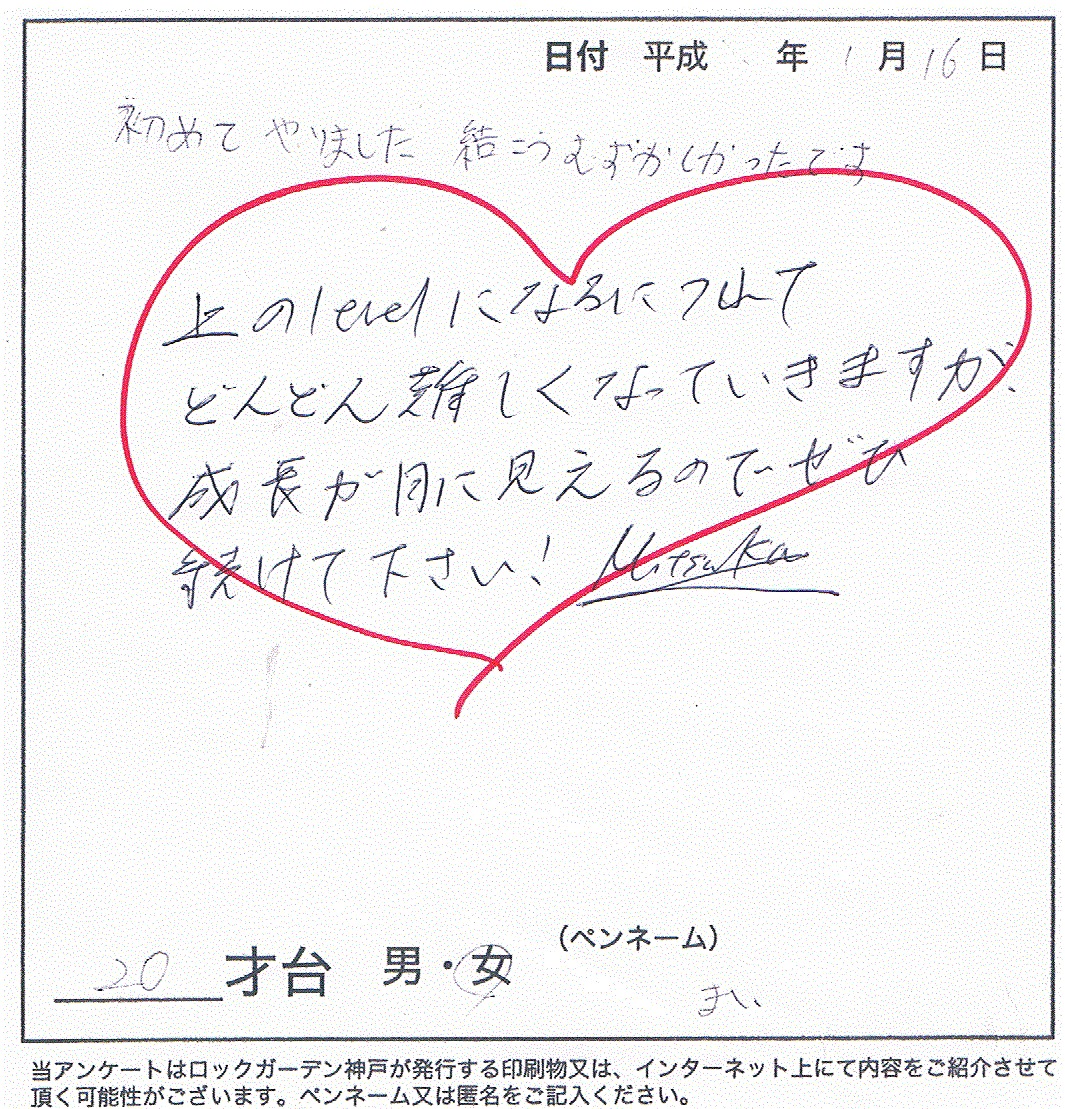 日付 平成 年 1月16日
初めて やりました 結こうむずかしかったです
上のlevelになるにつれて
どんどん難しくなっていきますが、
成長が目に見えるのでぜひ
続けて下さい! Mitsuka
20才台 男・女 (ペンネーム)
まい
当アンケートはロックガーデン神戸が発行する印刷物又は、インターネット上にて内容をご紹介させて
頂く可能性がございます。ペンネーム又は匿名をご記入ください。